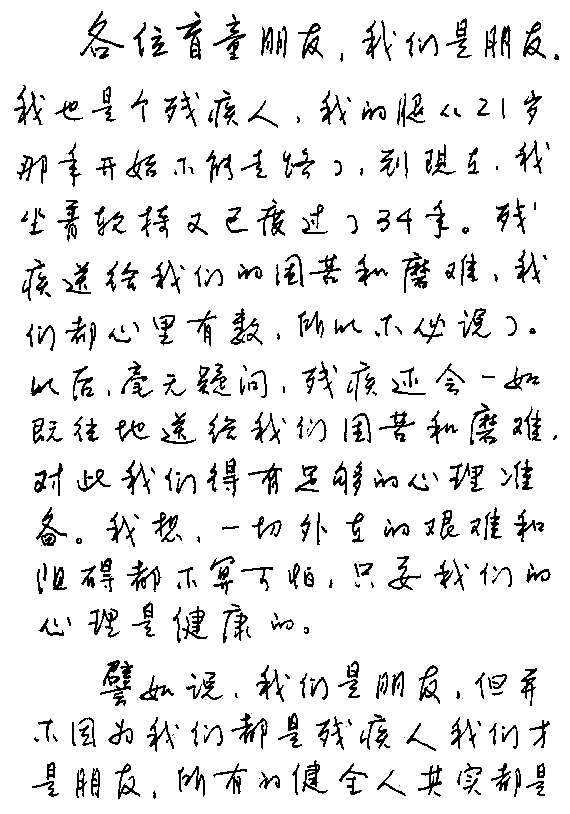 各位盲童朋友，我们是朋友。
我也是个残疾人，我的腿从21岁
那年开始不能走路了，到现在，我
坐着轮椅又已度过了34年。残
疾送给我们的困苦和磨难，我
们都心里有数，所以不必说了。
以后，毫无疑问，残疾还会一如
既往地送给我们困苦和磨难，
对此我们得有足够的心理准
备。我想，一切外在的艰难和
阻碍都不算可怕，只要我们的
心理是健康的。
譬如说，我们是朋友，但并
不因为我们都是残疾人我们才
是朋友，所有的健全人其实都是